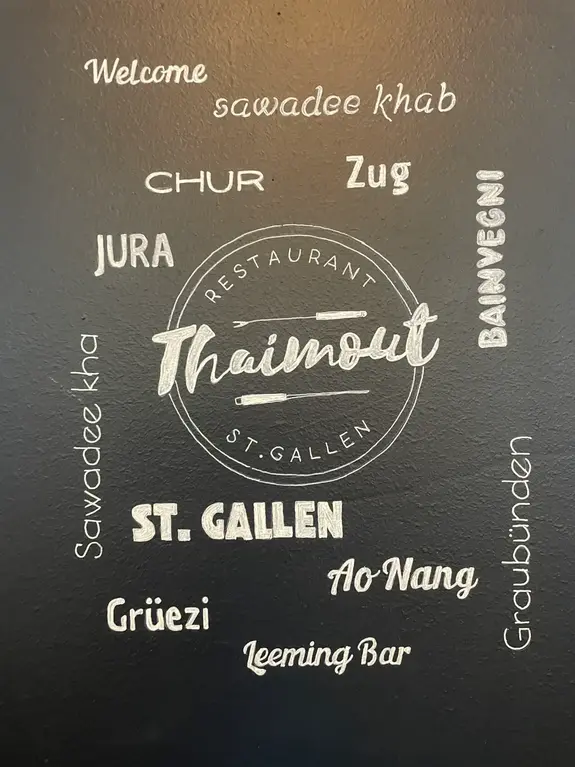 Welcome
sawadee khab
CHUR
Zug
BAINVEGNI
JURA
RESTAURANT
Thaimout
ST.GALLEN
Sawadee kha
ST. GALLEN
Ao Nang
Graubünden
Grüezi
Leeming Bar